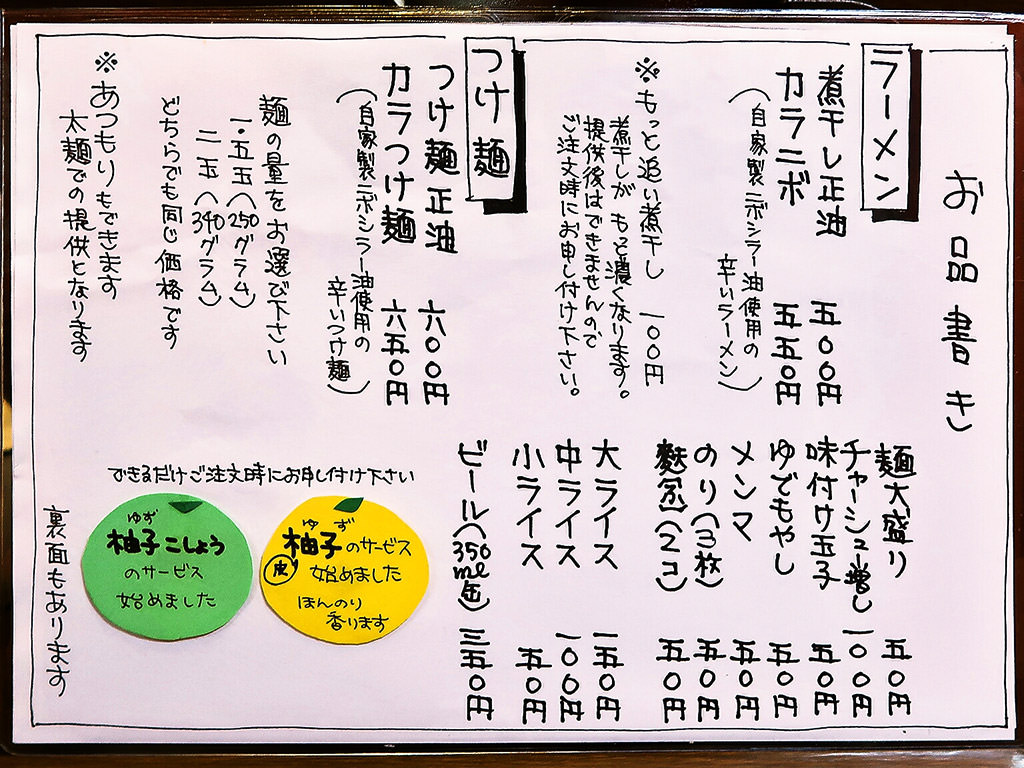 お品書き
ラーメン
煮干し正油 五〇〇円
カラニボ 五五〇円
（自家製ニボシラー油使用の
辛いラーメン）
※もっと追い煮干し 一〇〇円
煮干しがもっと濃くなります。
提供後はできませんので
ご注文時にお申し付け下さい。
つけ麺
つけ麺正油 六〇〇円
カラつけ麺 六五〇円
（自家製ニボシラー油使用の
辛いつけ麺）
麺の量をお選び下さい
一・五玉（250グラム）
二玉（340グラム）
どちらでも同じ価格です
※あつもりもできます
太麺での提供となります
麺大盛り 五〇円
チャーシュー増し 一〇〇円
味付け玉子 五〇円
ゆでもやし 五〇円
メンマ 五〇円
のり（3枚） 五〇円
（2コ） 五〇円
大ライス 一五〇円
中ライス 一〇〇円
小ライス 五〇円
ビール（350ml缶） 三五〇円
できるだけご注文時にお申し付け下さい
ゆず
柚子のサービス
皮
始めました
ほんのり
香ります
ゆず
柚子こしょう
のサービス
始めました
裏面もあります